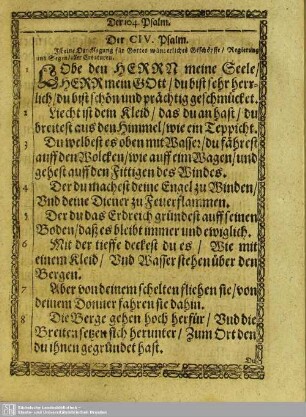 Der 104. Psalm.
Der CIV. Psalm.
Ist eine Dancksagung für Gottes wunderliches Geschöpffe / Regierung
und Segen aller Creaturen.
1 LObe den HERRN meine Seele/
HERR mein GOtt / du bist sehr herr-
lich / du bist schön und prächtig geschmücket.
2 Liecht ist dein Kleid / das du an hast / du
breitest aus den Himmel / wie ein Teppicht.
3 Du welbest es oben mit Wasser / du fährest
auff den Wolcken / wie auff eim Wagen / und
gehest auff den Fittigen des Windes.
4 Der du machest deine Engel zu Winden /
Und deine Diener zu Feuerflammen.
5 Der du das Erdreich gründest auff seinen
Boden / daß es bleibt immer und ewiglich.
6 Mit der tieffe deckest du es / Wie mit
einem Kleid / Und Wasser stehen über den
Bergen.
7 Aber von deinem schelten fliehen sie / von
deinem Donner fahren sie dahin.
8 Die Berge gehen hoch herfür / Und die
Breiten setzen sich herunter / Zum Ort den
du ihnen gegründet hast.